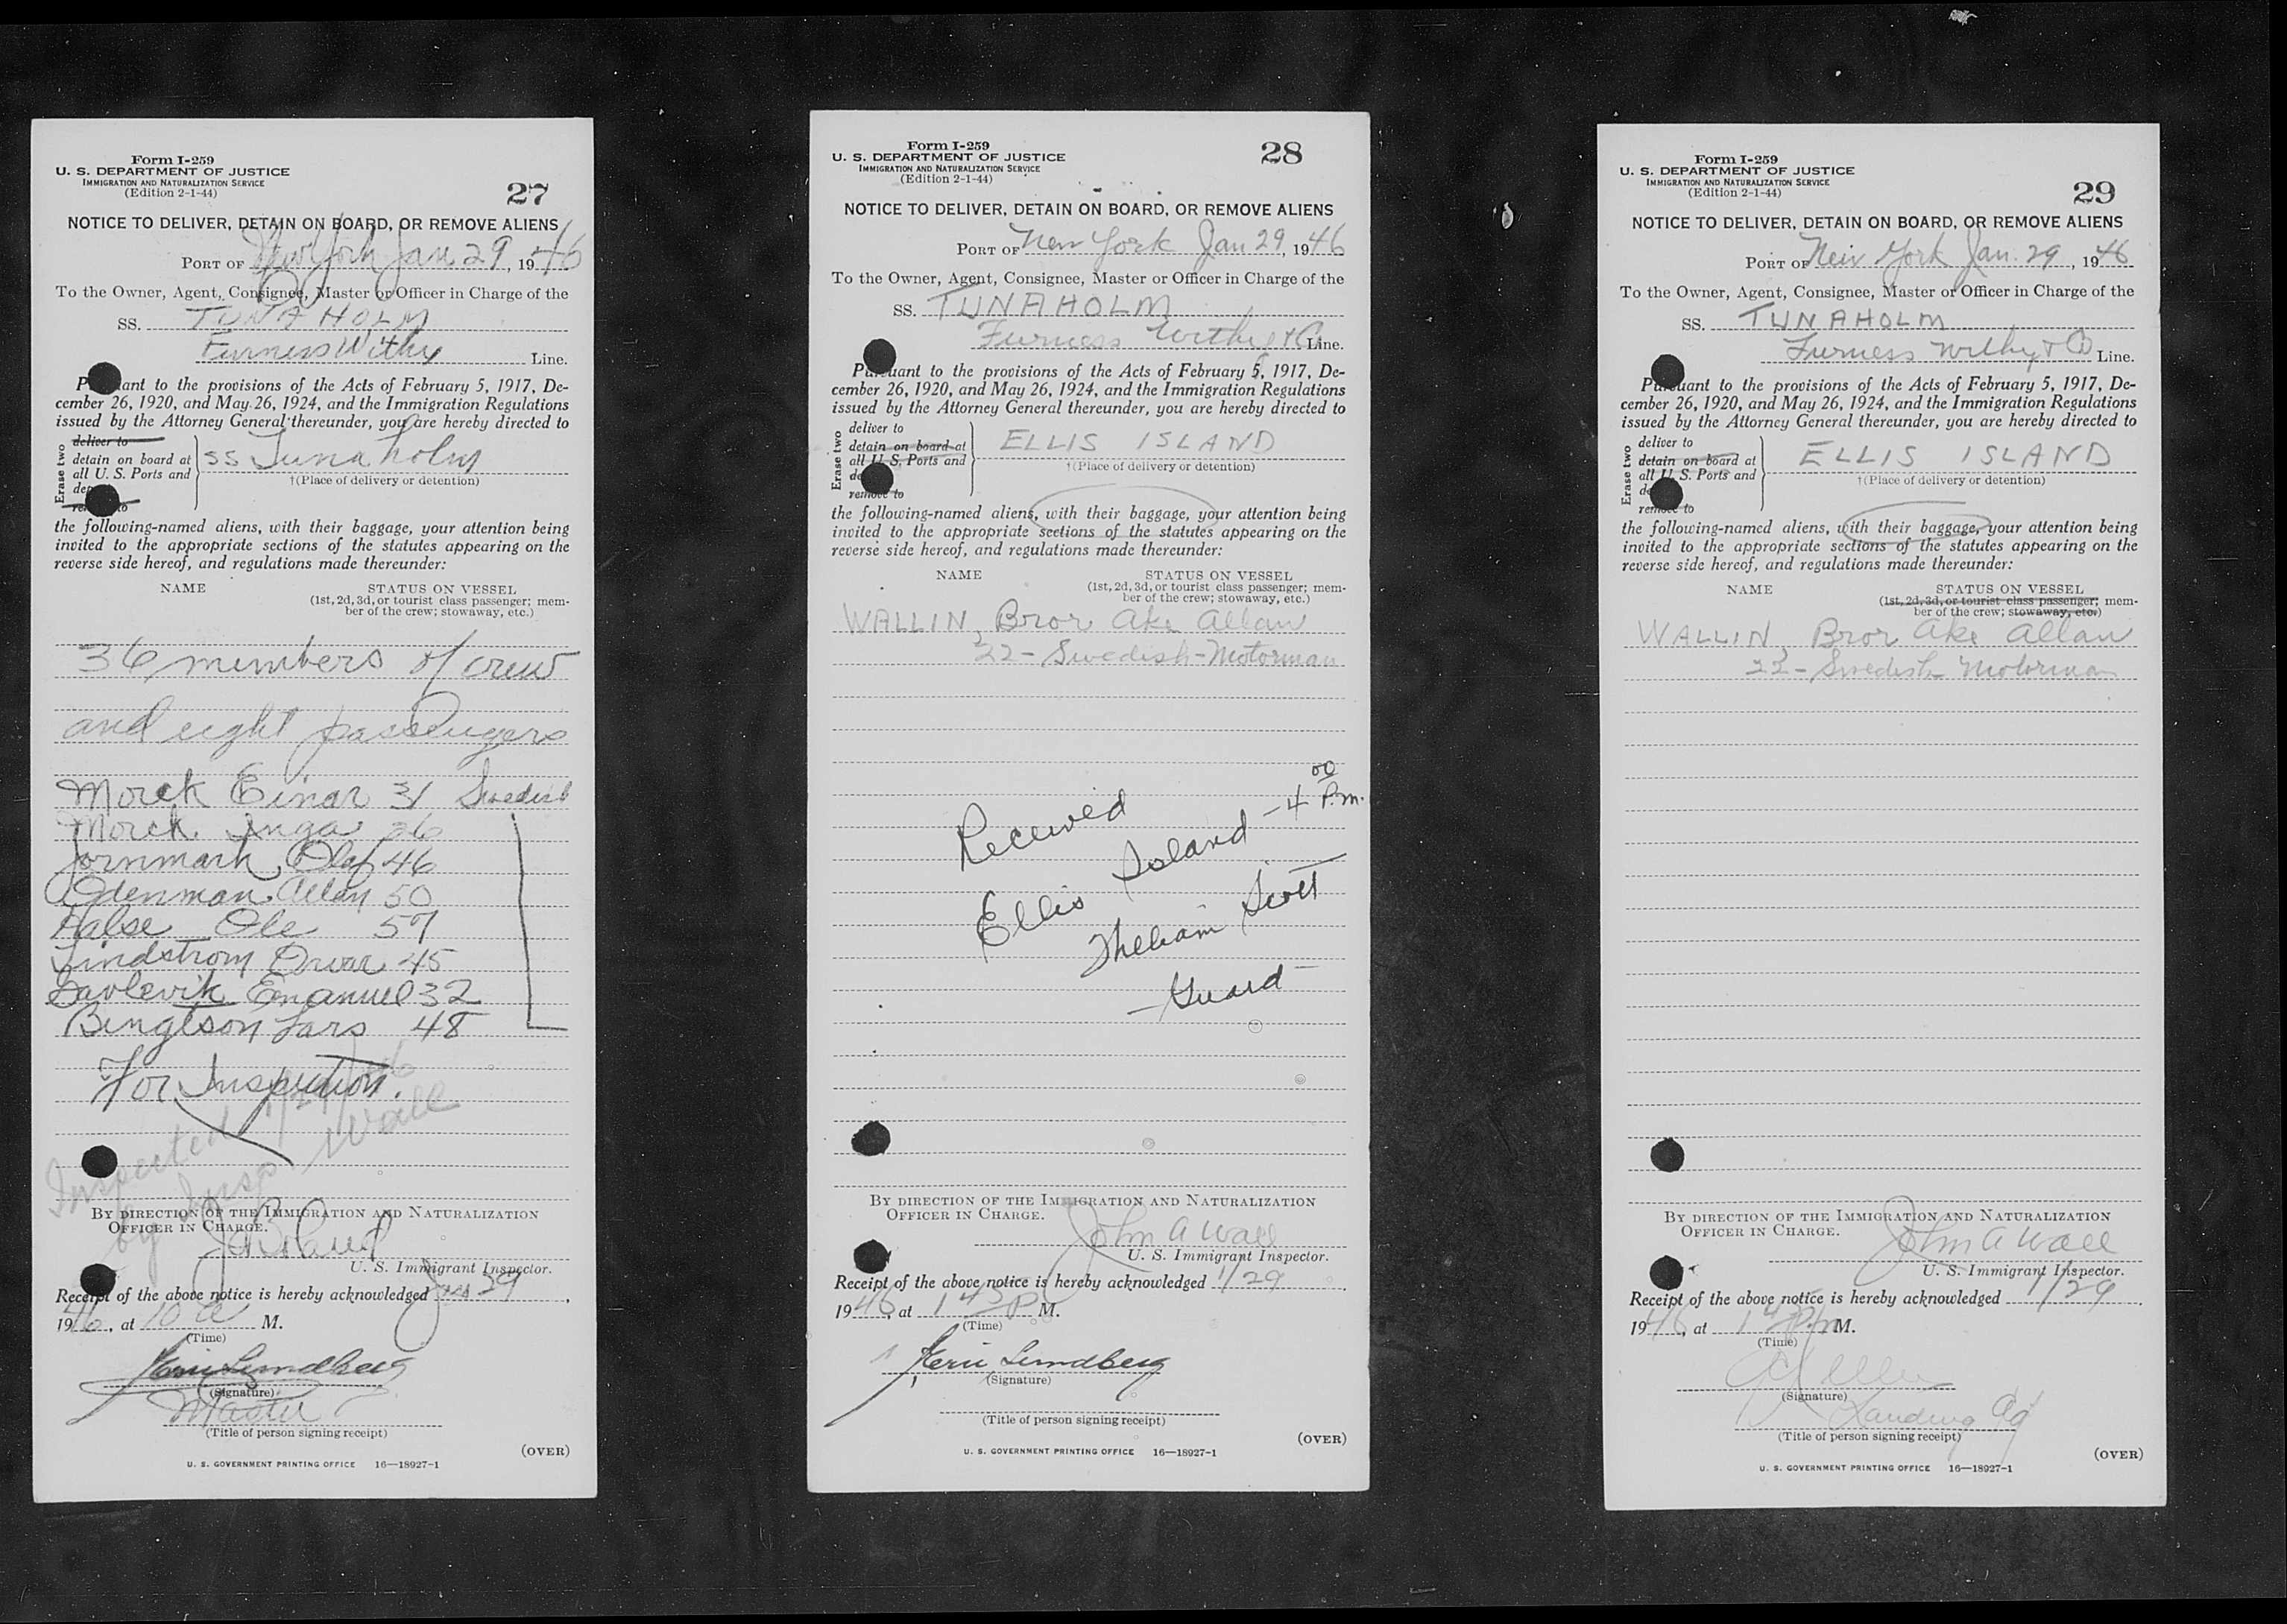 Form I-259
U. S. DEPARTMENT OF JUSTICE
IMMIGRATION AND NATURALIZATION SERVICE
(Edition 2-1-44)
27
NOTICE TO DELIVER, DETAIN ON BOARD, OR REMOVE ALIENS
PORT OF New York Jan 29, 1946
To the Owner, Agent, Consignee, Master or Officer in Charge of the
SS. TUNAHOLM
Furness Withy Line.
Pursuant to the provisions of the Acts of February 5, 1917, De-
cember 26, 1920, and May 26, 1924, and the Immigration Regulations
issued by the Attorney General thereunder, you are hereby directed to
Erase two
deliver to
detain on board at
all U. S. Ports and
remove to
SS Tunaholm
†(Place of delivery or detention)
the following-named aliens, with their baggage, your attention being
invited to the appropriate sections of the statutes appearing on the
reverse side hereof, and regulations made thereunder:
NAME STATUS ON VESSEL
(1st, 2d, 3d, or tourist class passenger; mem-
ber of the crew; stowaway, etc.)
36 members of crew
and eight passengers
Morck Einar 31 Swedish
Morck Inga 26
Jornmark, Olof 46
Odenman Allan 50
Halse Ole 57
Lindstrom Orvar 45
Savlevik Emanuel 32
Bengtson Lars 48
For Inspection.
Inspected 1/29/46
by Insp Wall
BY DIRECTION OF THE IMMIGRATION AND NATURALIZATION
OFFICER IN CHARGE.
U. S. Immigrant Inspector.
Receipt of the above notice is hereby acknowledged Jan 29,
1946, at 10 A M.
(Time)
Lundberg
(Signature)
Master
(Title of person signing receipt)
(OVER)
U. S. GOVERNMENT PRINTING OFFICE 16—18927-1
Form I-259
U. S. DEPARTMENT OF JUSTICE
IMMIGRATION AND NATURALIZATION SERVICE
(Edition 2-1-44)
28
NOTICE TO DELIVER, DETAIN ON BOARD, OR REMOVE ALIENS
PORT OF New York Jan 29, 1946
To the Owner, Agent, Consignee, Master or Officer in Charge of the
SS. TUNAHOLM
Furness Withy & Co Line.
Pursuant to the provisions of the Acts of February 5, 1917, De-
cember 26, 1920, and May 26, 1924, and the Immigration Regulations
issued by the Attorney General thereunder, you are hereby directed to
Erase two
deliver to
detain on board at
all U. S. Ports and
remove to
ELLIS ISLAND
†(Place of delivery or detention)
the following-named aliens, with their baggage, your attention being
invited to the appropriate sections of the statutes appearing on the
reverse side hereof, and regulations made thereunder:
NAME STATUS ON VESSEL
(1st, 2d, 3d, or tourist class passenger; mem-
ber of the crew; stowaway, etc.)
WALLIN, Bror Ake Allan
22 - Swedish - Motorman
Received
Ellis Island - 4 00 P.m.
Scott
- Guard
BY DIRECTION OF THE IMMIGRATION AND NATURALIZATION
OFFICER IN CHARGE.
John A Wall
U. S. Immigrant Inspector.
Receipt of the above notice is hereby acknowledged 1/29,
1946, at 1 45 P M.
(Time)
Lundberg
(Signature)
(Title of person signing receipt)
(OVER)
U. S. GOVERNMENT PRINTING OFFICE 16—18927-1
Form I-259
U. S. DEPARTMENT OF JUSTICE
IMMIGRATION AND NATURALIZATION SERVICE
(Edition 2-1-44)
29
NOTICE TO DELIVER, DETAIN ON BOARD, OR REMOVE ALIENS
PORT OF New York Jan. 29, 1946
To the Owner, Agent, Consignee, Master or Officer in Charge of the
SS. TUNAHOLM
Furness Withy & Co Line.
Pursuant to the provisions of the Acts of February 5, 1917, De-
cember 26, 1920, and May 26, 1924, and the Immigration Regulations
issued by the Attorney General thereunder, you are hereby directed to
Erase two
deliver to
detain on board at
all U. S. Ports and
remove to
ELLIS ISLAND
†(Place of delivery or detention)
the following-named aliens, with their baggage, your attention being
invited to the appropriate sections of the statutes appearing on the
reverse side hereof, and regulations made thereunder:
NAME STATUS ON VESSEL
(1st, 2d, 3d, or tourist class passenger; mem-
ber of the crew; stowaway, etc.)
WALLIN, Bror Ake Allan
22 - Swedish Motorman
BY DIRECTION OF THE IMMIGRATION AND NATURALIZATION
OFFICER IN CHARGE.
John A Wall
U. S. Immigrant Inspector.
Receipt of the above notice is hereby acknowledged 1/29,
1946, at 1 45 P.M.
(Time)
(Signature)
Landing Ag
(Title of person signing receipt)
(OVER)
U. S. GOVERNMENT PRINTING OFFICE 16—18927-1